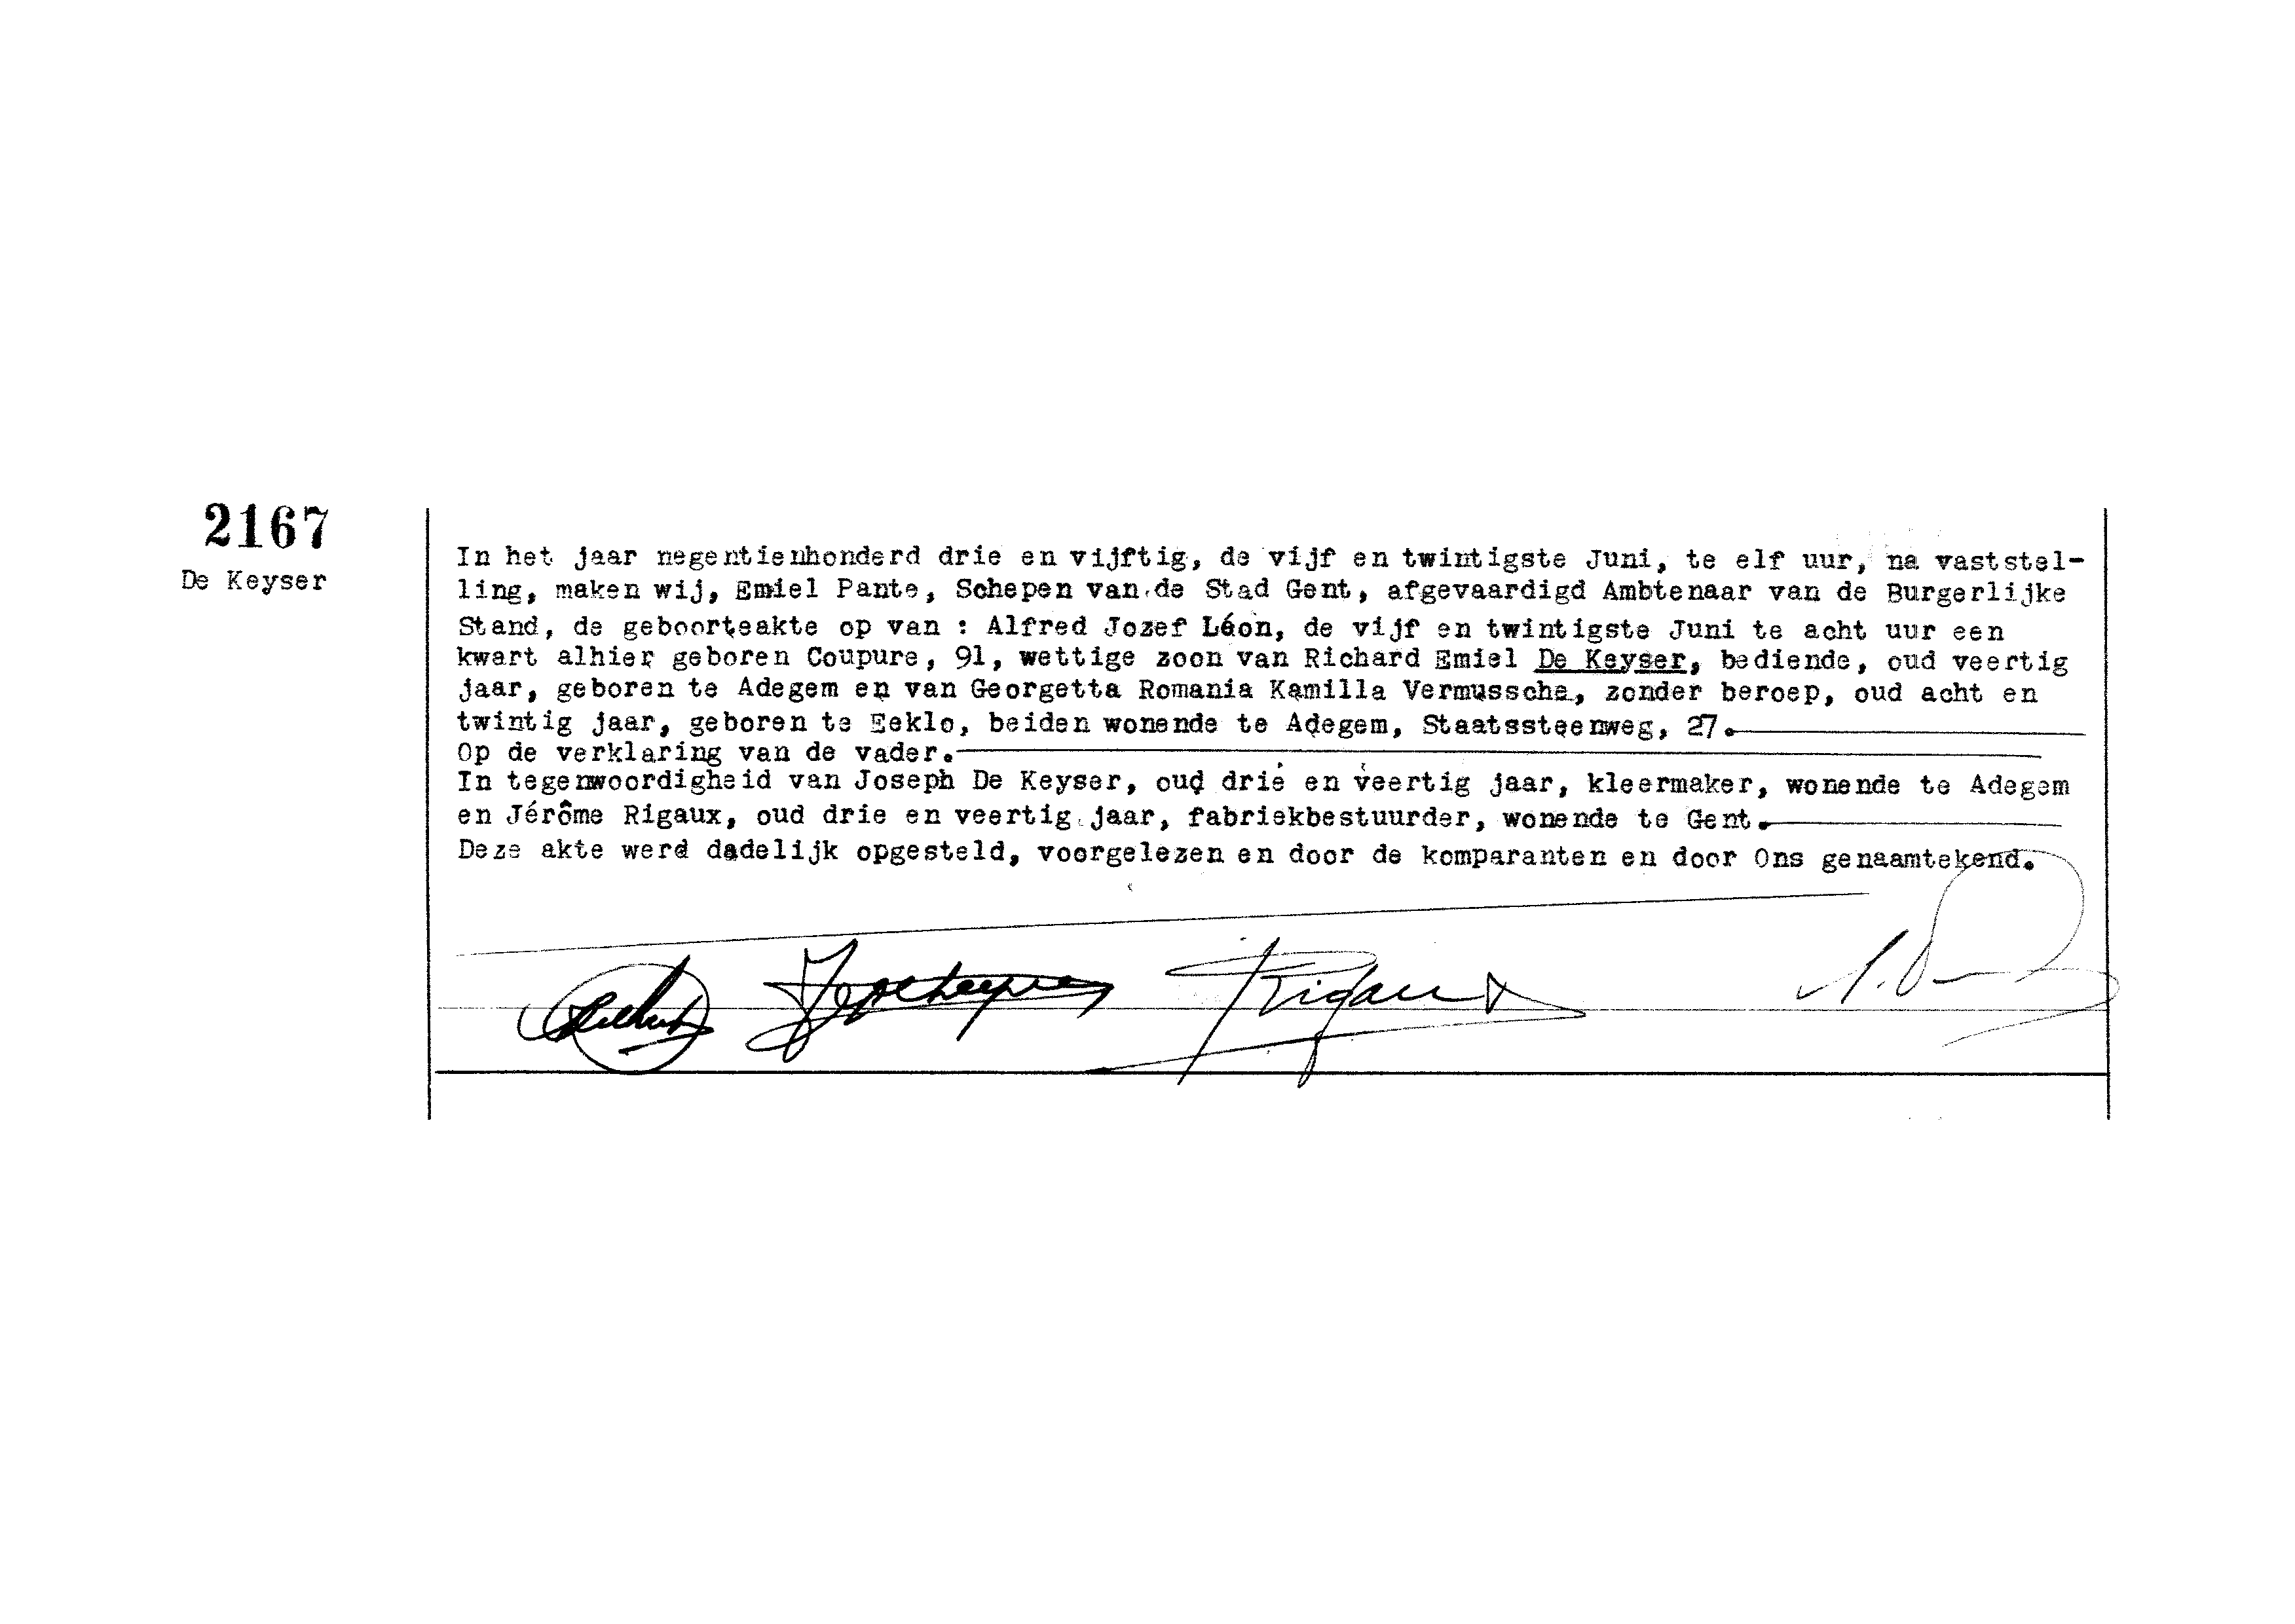 2167
De Keyser
In het jaar negentienhonderd drie en vijftig, de vijf en twintigste Juni, te elf uur, na vaststel-
ling, maken wij, Emiel Pante, Schepen van de Stad Gent, afgevaardigd Ambtenaar van de Burgerlijke
Stand, de geboorteakte op van : Alfred Jozef Léon, de vijf en twintigste Juni te acht uur een
kwart alhier geboren Coupure, 91, wettige zoon van Richard Emiel De Keyser, bediende, oud veertig
jaar, geboren te Adegem en van Georgetta Romania Kamilla Vermussche, zonder beroep, oud acht en
twintig jaar, geboren te Eeklo, beiden wonende te Adegem, Staatssteenweg, 27.
Op de verklaring van de vader.
In tegenwoordigheid van Joseph De Keyser, oud drie en veertig jaar, kleermaker, wonende te Adegem
en Jérôme Rigaux, oud drie en veertig jaar, fabriekbestuurder, wonende te Gent.
Deze akte werd dadelijk opgesteld, voorgelezen en door de komparanten en door Ons genaamtekend.
Rigaux